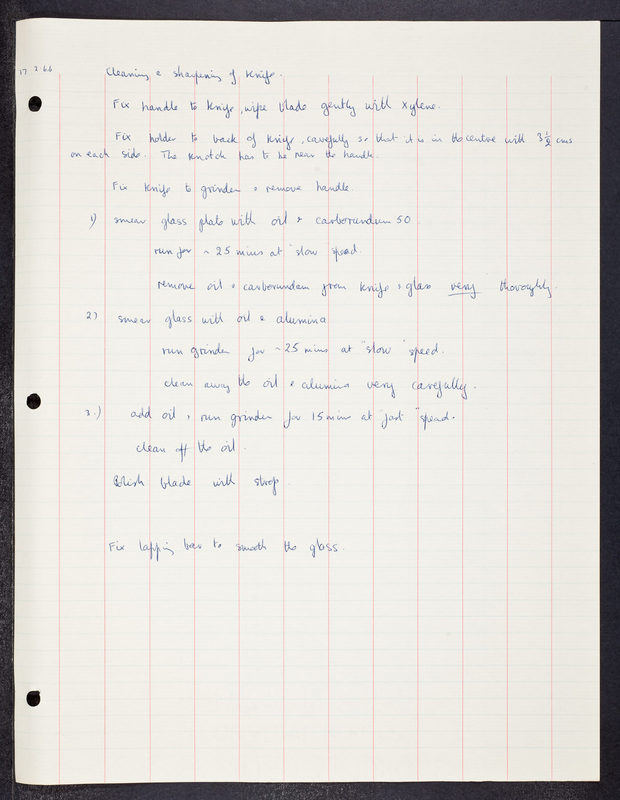 17. 2. 66
Cleaning & sharpening of Knife.
Fix handle to Knife, wipe blade gently with Xylene.
Fix holder to back of Knife, carefully so that it is in the centre with 3 1/2 cms
on each side. The Knotch has to be near the handle.
Fix Knife to grinder & remove handle.
1) smear glass plate with oil & carborundum 50
run for ~ 25 mins at "slow" speed.
remove oil & carborundum from Knife & glass very thoroughly.
2) smear glass with oil & alumina
run grinder for ~ 25 mins at "slow" speed.
clean away the oil & alumina very carefully.
3.) add oil, run grinder for 15 mins at "fast" speed.
clean off the oil.
Polish blade with strop
Fix lapping bar to smooth the glass.